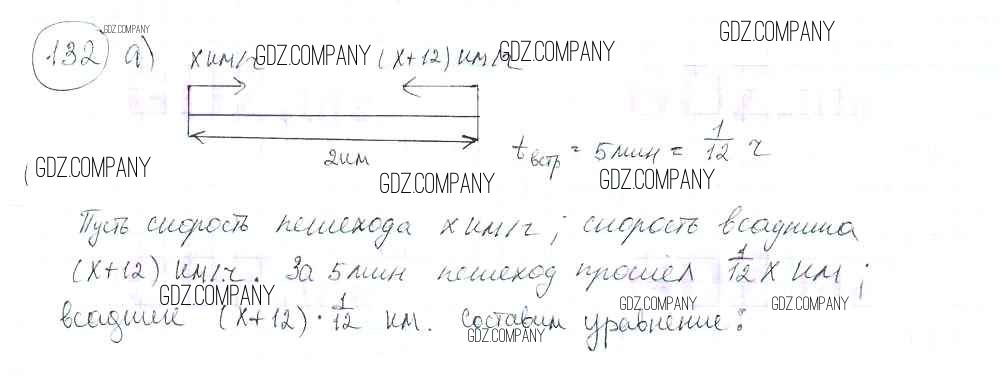 GDZ.COMPANY
GDZ.COMPANY
132 а) x км/ч GDZ.COMPANY (x+12) км/ч GDZ.COMPANY
2 км
t встр = 5 мин = 1/12 ч
GDZ.COMPANY
GDZ.COMPANY GDZ.COMPANY
Пусть скорость пешехода x км/ч; скорость всадника
(x+12) км/ч. За 5 мин пешеход прошёл 1/12 x км;
GDZ.COMPANY GDZ.COMPANY GDZ.COMPANY
всадник (x+12)·1/12 км. Составим уравнение:
GDZ.COMPANY